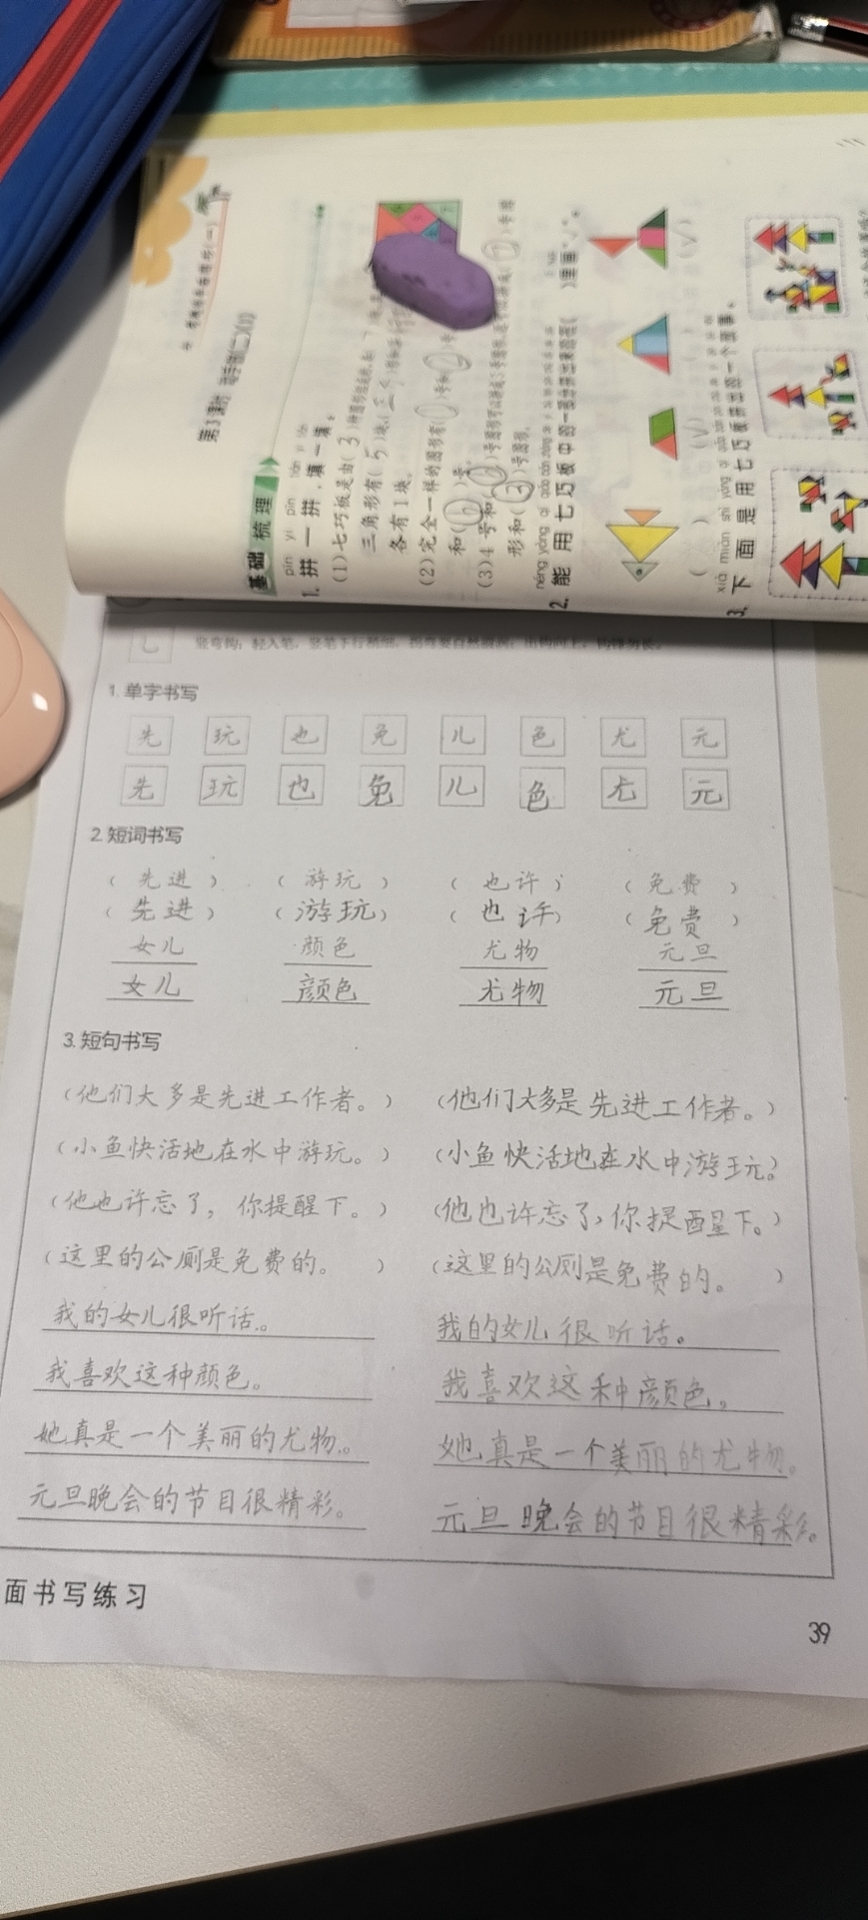 第3课时
基础梳理
pīn yi pīn
1. 拼一拼，填一填。
(1)七巧板是由(3)种图形组成的,
三角形有(5)块,
各有1块。
(2)完全一样的图形有(1)号和(2)号
和(6)号。
(3)4号和(
形和(3)号图形。
2. 能用七巧板中的一
)里画“√”。
( ) (√) ( ) (√)
xià miàn shì yòng qī qiǎo bǎn
3. 下面是用七巧板拼出的一个故事。
竖弯钩：轻入笔，竖笔下行稍细，拐弯要自然圆润；出钩向上，钩锋勿长。
1. 单字书写
先 玩 也 免 儿 色 尤 元
先 玩 也 免 儿 色 尤 元
2. 短词书写
（先进） （游玩） （也许） （免费）
（先进） （游玩） （也许） （免费）
女儿 颜色 尤物 元旦
女儿 颜色 尤物 元旦
3. 短句书写
（他们大多是先进工作者。） （他们大多是先进工作者。）
（小鱼快活地在水中游玩。） （小鱼快活地在水中游玩。）
（他也许忘了，你提醒下。） （他也许忘了，你提醒下。）
（这里的公厕是免费的。） （这里的公厕是免费的。）
我的女儿很听话。 我的女儿很听话。
我喜欢这种颜色。 我喜欢这种颜色。
她真是一个美丽的尤物。 她真是一个美丽的尤物。
元旦晚会的节目很精彩。 元旦晚会的节目很精彩。
面书写练习
39